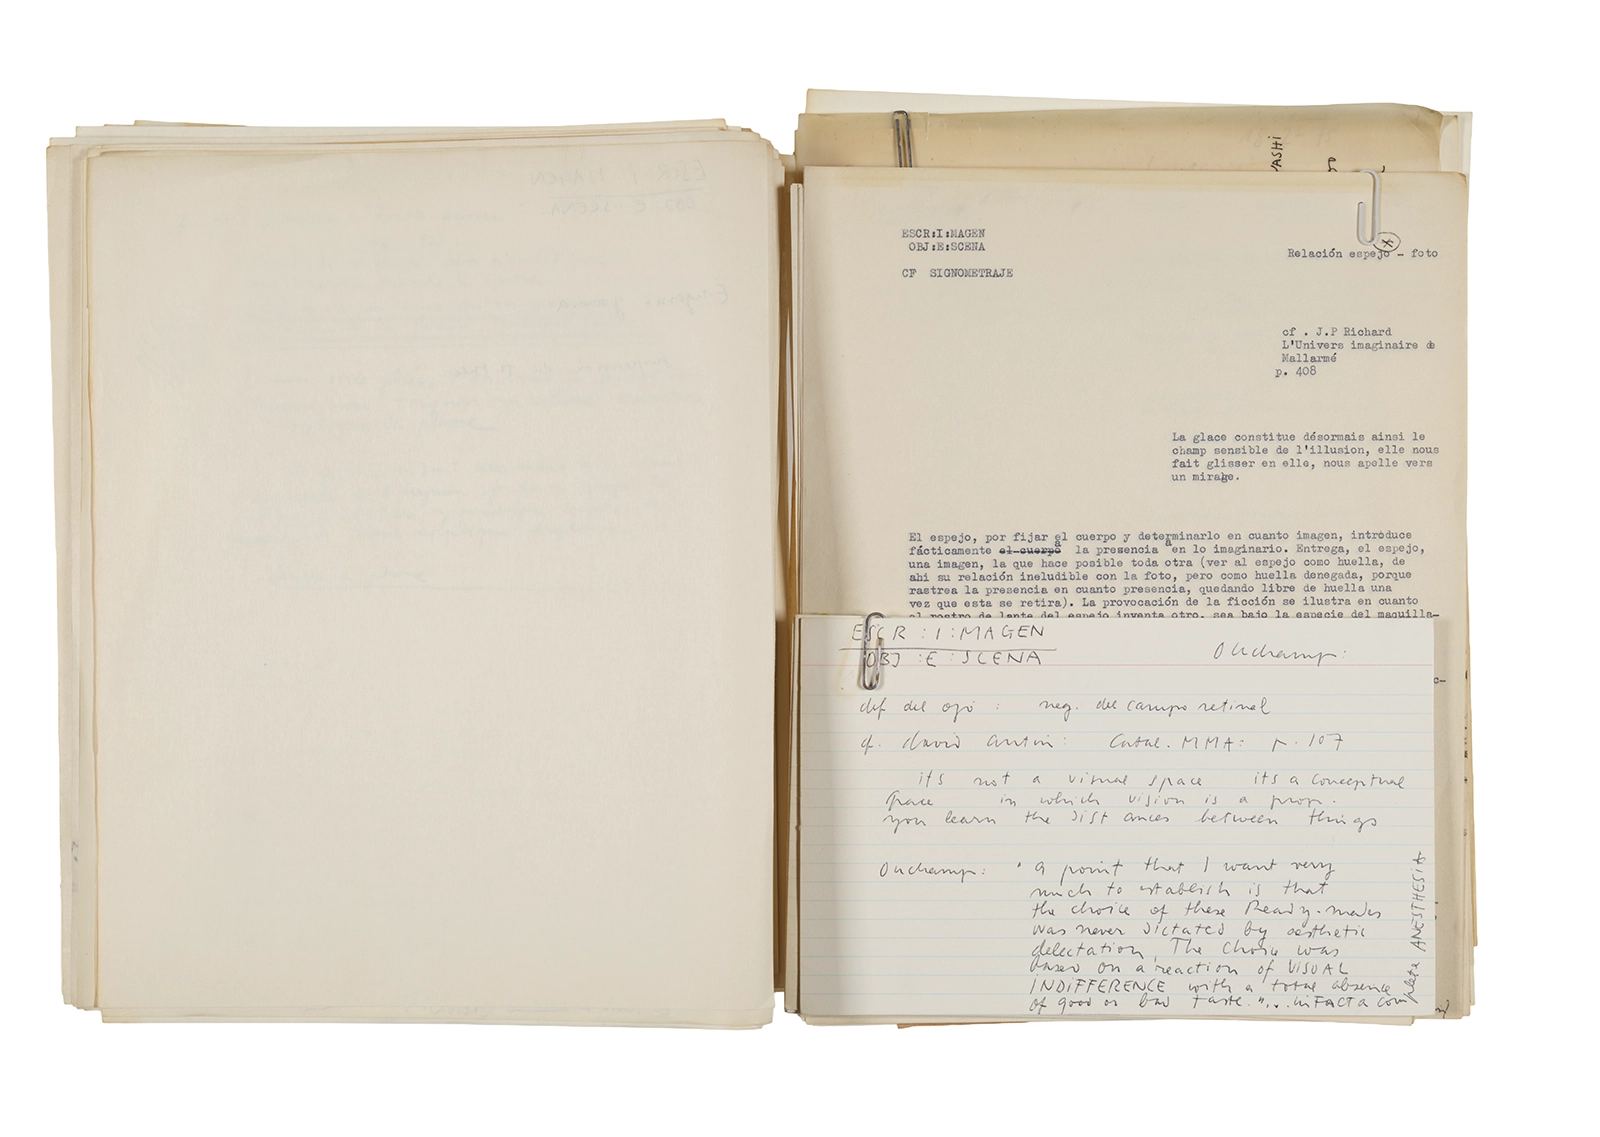 ASHI
ESCR:I:MAGEN
OBJ:E:SCENA
CF SIGNOMETRAJE
Relación espejo - foto
cf . J.P Richard
L'Univers imaginaire de
Mallarmé
p. 408
La glace constitue désormais ainsi le
champ sensible de l'illusion, elle nous
fait glisser en elle, nous apelle vers
un mirage.
El espejo, por fijar el cuerpo y determinarlo en cuanto imagen, introduce
fácticamente el cuerpo a la presencia a en lo imaginario. Entrega, el espejo,
una imagen, la que hace posible toda otra (ver al espejo como huella, de
ahi su relación ineludible con la foto, pero como huella denegada, porque
rastrea la presencia en cuanto presencia, quedando libre de huella una
vez que esta se retira). La provocación de la ficción se ilustra en cuanto
el rostro de lante del espejo inventa otro, sea bajo la especie del maquilla-
ESCR : I : MAGEN
OBJ : E : SCENA
Duchamp:
def del ojo : neg. del campo retinal
cf. david antin: Catal. MMA: p. 107
its not a visual space its a conceptual
space in which vision is a prop.
you learn the distances between things
Duchamp: " A point that I want very
much to establish is that
the choice of these Ready-mades
was never dictated by aesthetic
delectation, The choice was
based on a reaction of VISUAL
INDIFFERENCE with a total absence
of good or bad taste."... in FACT a com
plete ANESTHESIA